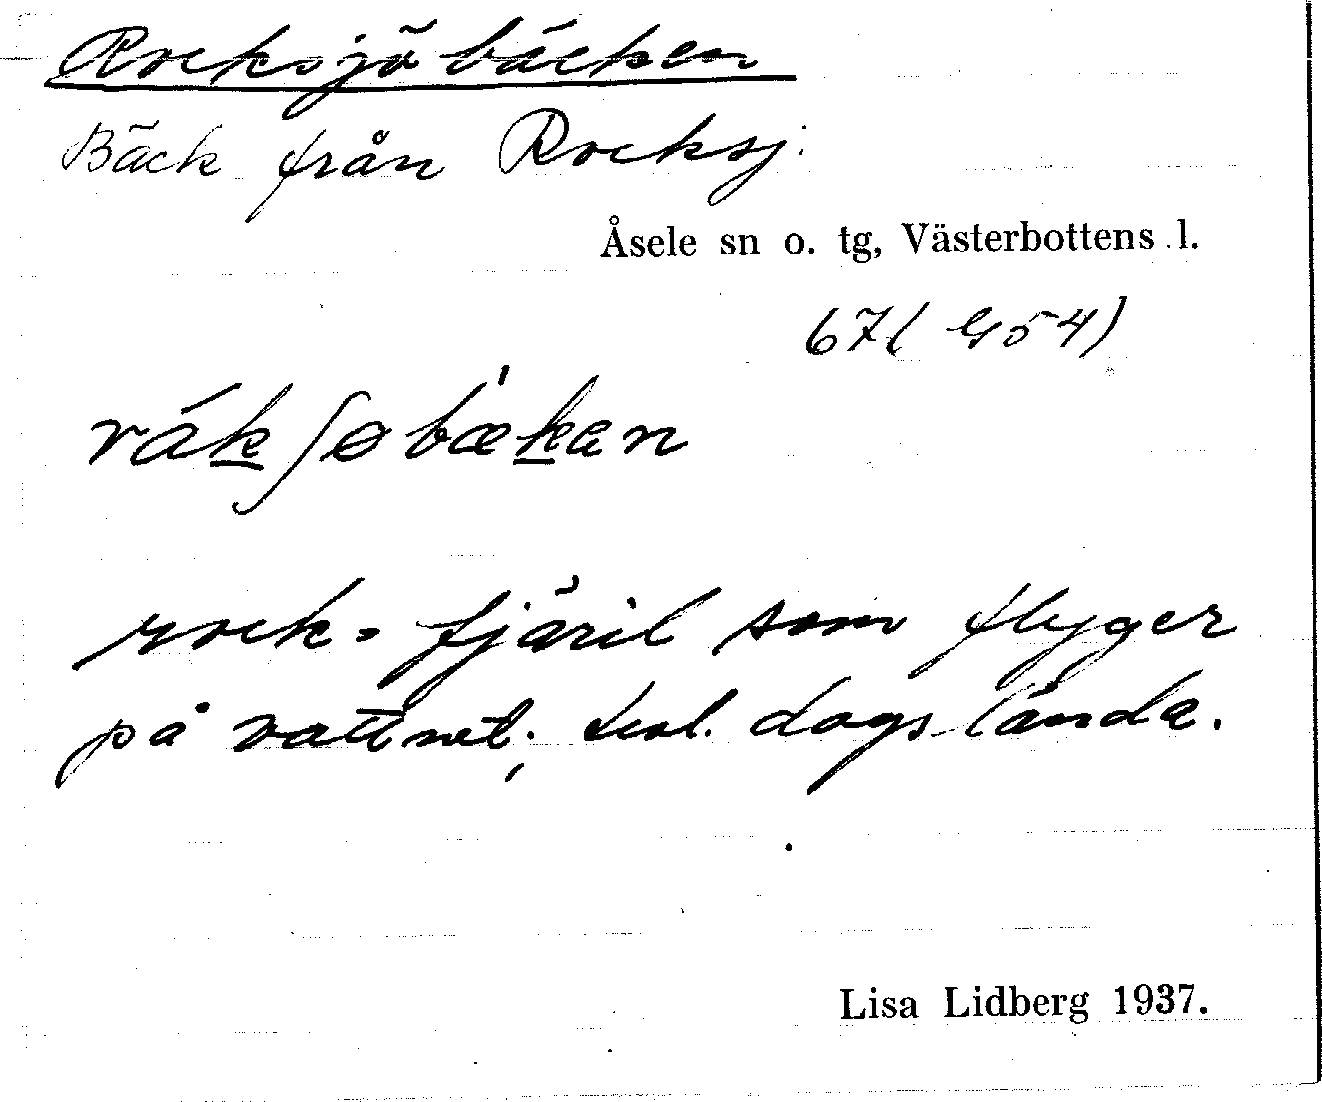 Rocksjöbäcken
Bäck från Rocksj.
Åsele sn o. tg, Västerbottens l.
67( G54)
råkʃøbækan
rock = fjäril som flyger
på vattnet; dagslända.
Lisa Lidberg 1937.